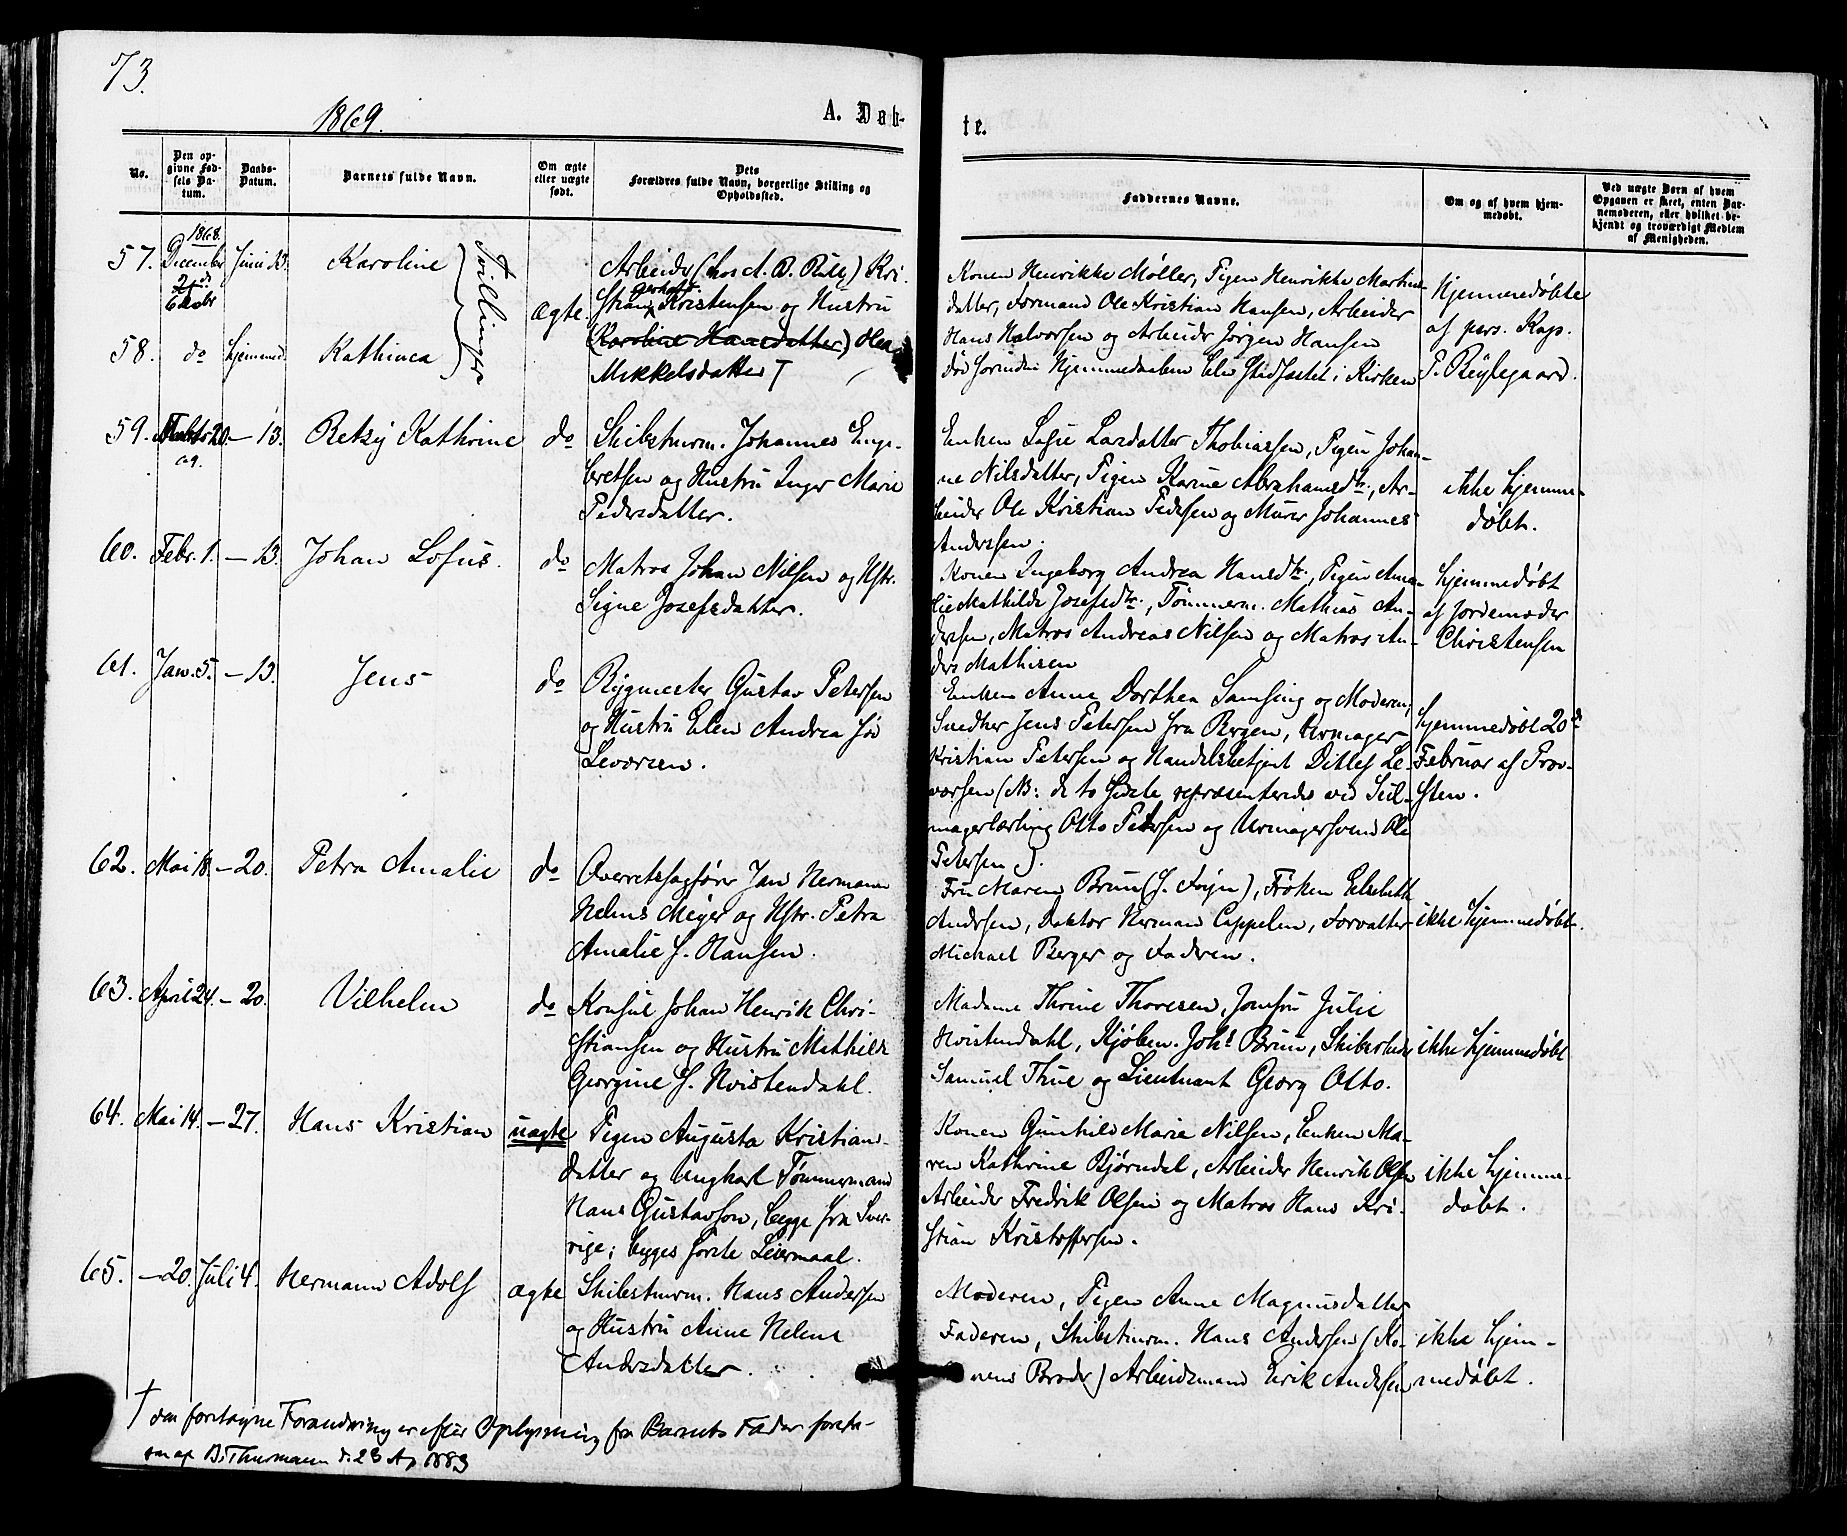 73.
1869.
A. Døb-
te.
No.
Den op-
givne Fød-
sels Da-
tum.
Daabs-
Datum.
Barnets fulde Navn.
Om ægte
eller uægte
født.
Dets
Forældres fulde Navn, borgerlige Stilling og
Opholdssted.
Faddernes Navne.
Om og af hvem hjem-
medøbt.
Ved uægte Børn af hvem
Opgaven er skeet, enten Bar-
nemoderen, eller hvilket be-
kjendt og troværdigt Medlem
af Menigheden.
57.
1868.
December
Juni 13.
Karoline
Tvillinger
ægte.
Arbeider (hos A. B.) Kri-
stian Kristensen og Hustru
(Karoline Hansdatter)
Mikkelsdatter †
Konen Henrikke Møller, Pigen Henrikke Martins-
datter, Formand Ole Kristian Hansen, Arbeider
Hans Halvorsen og Arbeider Jørgen Hansen
Hjemmedaaben blev stadfæstet i Kirken
Hjemmedøbte
af pers. Kap.
58.
do
hjemmed.
Kathinca
59.
20.
69.
— 13.
Betzy Kathrine
do
Skibstmrm. Johannes Enge-
bretsen og Hustru Inger Marie
Pedersdatter.
Enken Sofie Larsdatter Thobiassen, Pigen Johan-
ne Nilsdatter, Pigen Karine Abrahamsdtr., Ar-
beider Ole Kristian Pedersen og Murer Johannes
Andersen.
ikke hjemme-
døbt.
60.
Febr. 1.
— 13.
Johan Lofus.
do
Matros Johan Nilsen og Hstr.
Signe Josefsdatter.
Konen Ingeborg Andrea Hansdtr., Pigen Ama-
lie Mathilde Josefsdtr., Tømmerm. Mathias An-
dersen, Matros Andreas Nilsen og Matros An-
ders Mathisen
hjemmedøbt
af Jordemoder
Christensen
61.
Jan. 5.
— 13.
Jens
do
Rygmester Gustav Petersen
og Hustru Elen Andrea fød
Leversen.
Enken Anne Dorthea Samsing og Moderen,
Snedker Jens Petersen fra Bergen, Urmager
Kristian Petersen og Handelsbetjent Ditlef Le-
versen (NB: de to sidste repræsenterede ved Seil-
magerlærling Otto Petersen og Urmagersvend Ole
Petersen).
hjemmedøbt 20de
Februar af Prov-
sten.
62.
Mai 18.
— 20.
Petra Amalie
do
Overretssagfører Jan Herman
Helms Meyer og Hstr. Petra
Amalie f. Hansen.
Fru Maren Brun (f. Foyn), Frøken Elisabeth
Andersen, Doktor Herman Cappelen, Forvalter
Michael Berger og Faderen.
ikke hjemmedøbt.
63.
April 24.
— 20.
Vilhelm
do
Konsul Johan Henrik Chri-
stiansen og Hustru Mathilde
Georgine f. Hvistendahl.
Madame Thrine Thoresen, Jomfru Julie
Hvistendahl, Kjøbm. Johs. Brun, Skibsreder
Samuel Thue og Lieutnant Georg Otto.
ikke hjemmedøbt
64.
Mai 14.
— 27.
Hans Kristian
uægte
Pigen Augusta Kristians-
datter og Ungkarl Tømmermand
Hans Gustavson, begge fra Sver-
rige; begges første Leiermaal.
Konen Gunhild Marie Nilsen, Enken Ma-
ren Kathrine Bjørndal, Arbeider Henrik Olsen
Arbeider Fredrik Olsen og Matros Hans Kri-
stian Kristoffersen.
ikke hjemme-
døbt.
65.
— 20.
Juli 4.
Hermann Adolf
ægte
Skibstmrm. Hans Andersen
og Hustru Anne Helene
Andersdatter.
Moderen, Pigen Anne Magnusdatter
Faderen, Skibstmrm. Hans Andersen (Ko-
nens Broder) Arbeidsmand Erik Andersen
ikke hjem-
medøbt.
† den foretagne Forandring er efter Oplysning fra Barnets Fader foreta-
gen af B. Thurmann d. 23 Ap 1883